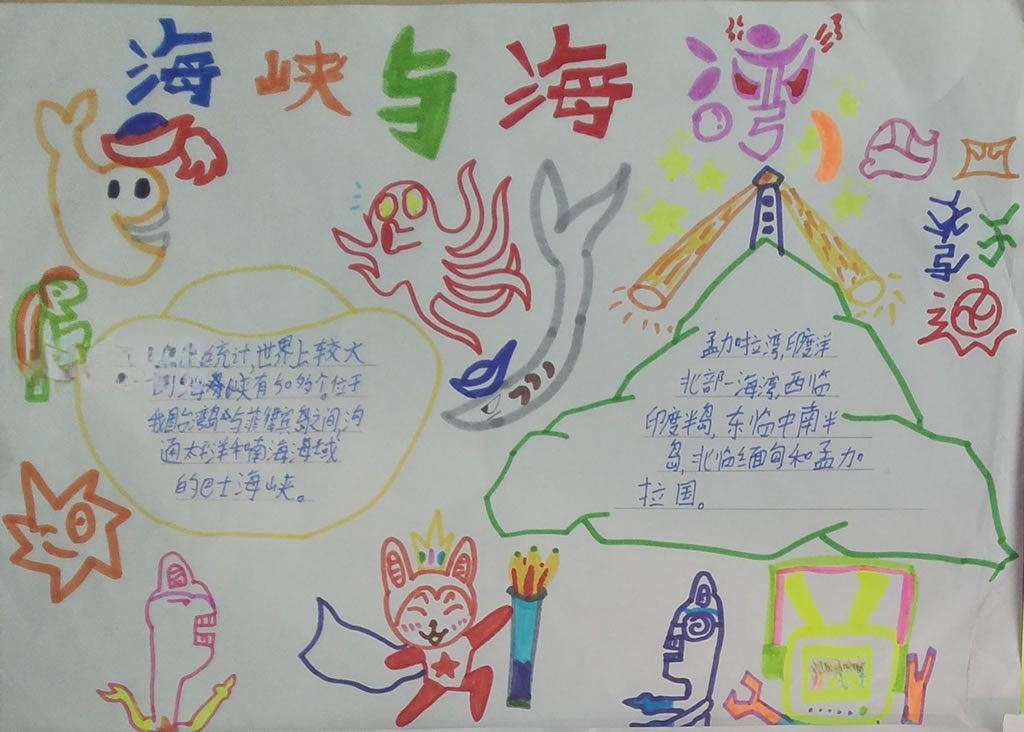 海峡与海湾
统计,世界上较大
峡有50多个,位于
我国台湾岛与菲律宾岛之间,沟
通太平洋和南海海域
的巴士海峡。
孟加拉湾,印度洋
北部一海湾,西临
印度半岛,东临中南半
岛,北临缅甸和孟加
拉国。